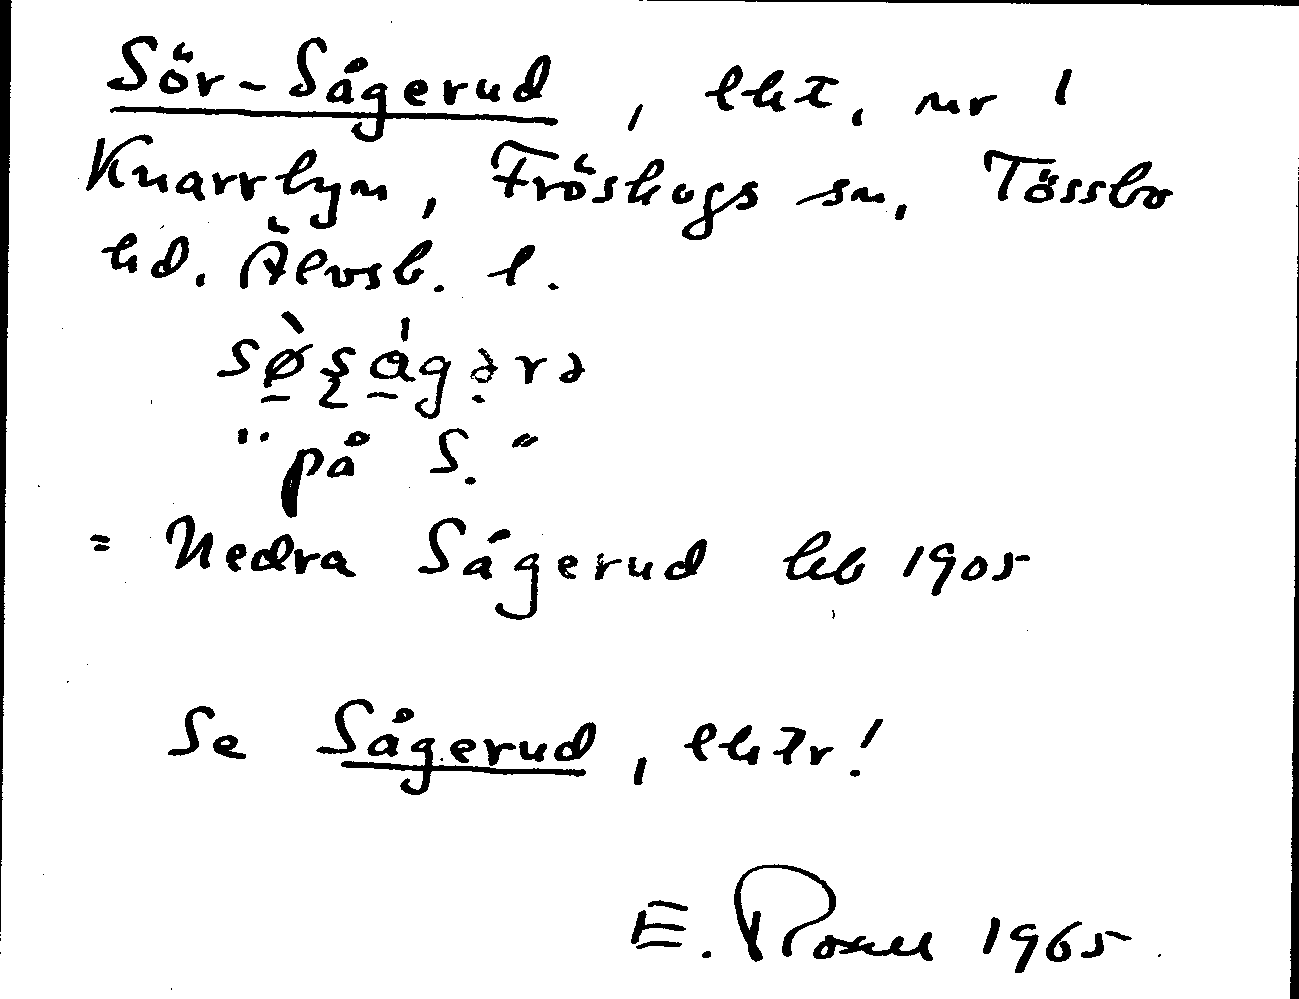 Sör-Sågerud, lht, nr 1
Knarrbyn, Fröskogs sn, Tössbo
hd. Älvsb. l.
sø̀ṣågərə
"på S."
= Nedra Sågerud hb 1905
Se Sågerud, lhtr!
E. Rosell 1965